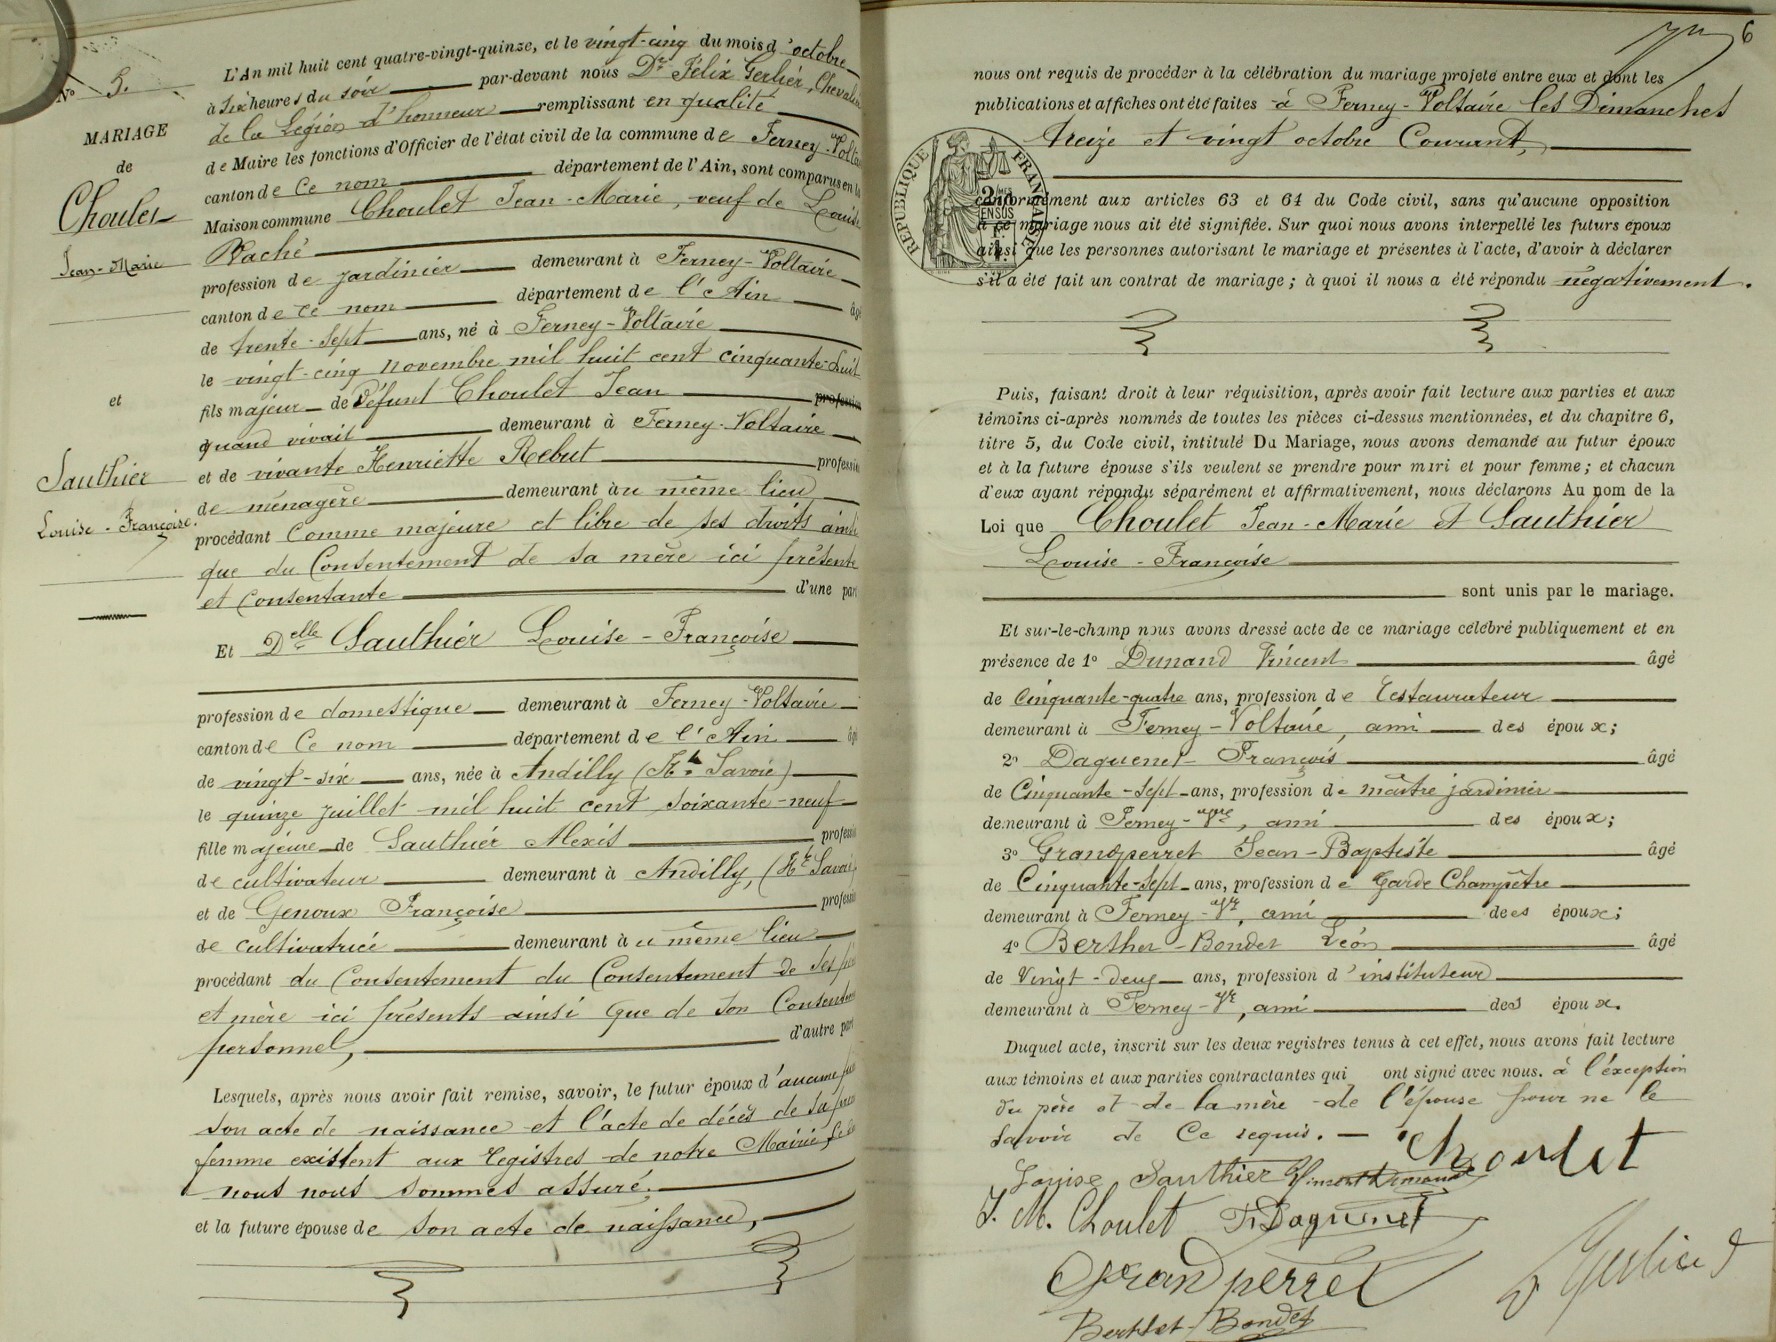 N° 5.
MARIAGE
de
Choulet
Jean-Marie
et
Sauthier
Louise-Françoise.
L'An mil huit cent quatre-vingt-quinze, et le vingt-cinq du mois d'octobre
à six heures du soir par-devant nous Dr Félix Gerlier, Chevalier
de la Légion d'honneur remplissant en qualité
de Maire les fonctions d'Officier de l'état civil de la commune de Ferney-Voltaire
canton de ce nom département de l'Ain, sont comparus en la
Maison commune Choulet Jean-Marie, veuf de Louise
Vaché
profession de jardinier demeurant à Ferney-Voltaire
canton de ce nom département de l'Ain âgé
de trente-sept ans, né à Ferney-Voltaire
le vingt-cinq novembre mil huit cent cinquante-huit
fils majeur de Défunt Choulet Jean profession
quand vivait demeurant à Ferney-Voltaire
et de vivante Henriette Rebut profession
de ménagère demeurant àu même lieu
procédant comme majeure et libre de ses droits ainsi
que du Consentement de sa mère ici présente
et Consentante d'une part
Et Delle Sauthier Louise-Françoise
profession de domestique demeurant à Ferney-Voltaire
canton de Ce nom département de l'Ain âgé
de vingt-six ans, née à Andilly (Hte Savoie)
le quinze juillet mil huit cent soixante-neuf
fille majeure de Sauthier Alexis profession
de cultivateur demeurant à Andilly, (Hte Savoie)
et de Genoux Françoise profession
de cultivatrice demeurant àu même lieu
procédant du Consentement du Consentement de ses père
et mère ici présents ainsi que de son Consentement
personnel, d'autre part
Lesquels, après nous avoir fait remise, savoir, le futur époux d'aucune pièce
son acte de naissance et l'acte de décès de sa
femme existent aux registres de notre Mairie,
nous nous sommes assuré.
et la future épouse de son acte de naissance,
6
nous ont requis de procéder à la célébration du mariage projeté entre eux et dont les
publications et affiches ont été faites à Ferney-Voltaire les Dimanches
treize et vingt octobre Courant,
REPUBLIQUE FRANÇAISE
conformément aux articles 63 et 64 du Code civil, sans qu'aucune opposition
à ce mariage nous ait été signifiée. Sur quoi nous avons interpellé les futurs époux
ainsi que les personnes autorisant le mariage et présentes à l'acte, d'avoir à déclarer
s'il a été fait un contrat de mariage ; à quoi il nous a été répondu négativement.
Puis, faisant droit à leur réquisition, après avoir fait lecture aux parties et aux
témoins ci-après nommés de toutes les pièces ci-dessus mentionnées, et du chapitre 6,
titre 5, du Code civil, intitulé Du Mariage, nous avons demandé au futur époux
et à la future épouse s'ils veulent se prendre pour mari et pour femme ; et chacun
d'eux ayant répondu séparément et affirmativement, nous déclarons Au nom de la
Loi que Choulet Jean-Marie et Sauthier
Louise-Françoise
sont unis par le mariage.
Et sur-le-champ nous avons dressé acte de ce mariage célébré publiquement et en
présence de 1° Dunand Vincent âgé
de cinquante-quatre ans, profession de restaurateur
demeurant à Ferney-Voltaire, ami des époux;
2° Daguenet François âgé
de Cinquante-sept ans, profession de maître jardinier
demeurant à Ferney-Vre, ami des époux;
3° Grandperret Jean-Baptiste âgé
de Cinquante-sept ans, profession de Garde Champêtre
demeurant à Ferney-Vre, ami dees époux;
4° Berthet-Bondet Léon âgé
de Vingt-deux ans, profession d'instituteur
demeurant à Ferney-Vre, ami des époux.
Duquel acte, inscrit sur les deux registres tenus à cet effet, nous avons fait lecture
aux témoins et aux parties contractantes qui ont signé avec nous. à l'exception
du père et de la mère de l'épouse pour ne le
savoir de Ce requis.
Choulet
Louise Sauthier
J. M. Choulet Fs Daguenet
Grandperret
Dr Gerlier
Berthet-Bondet